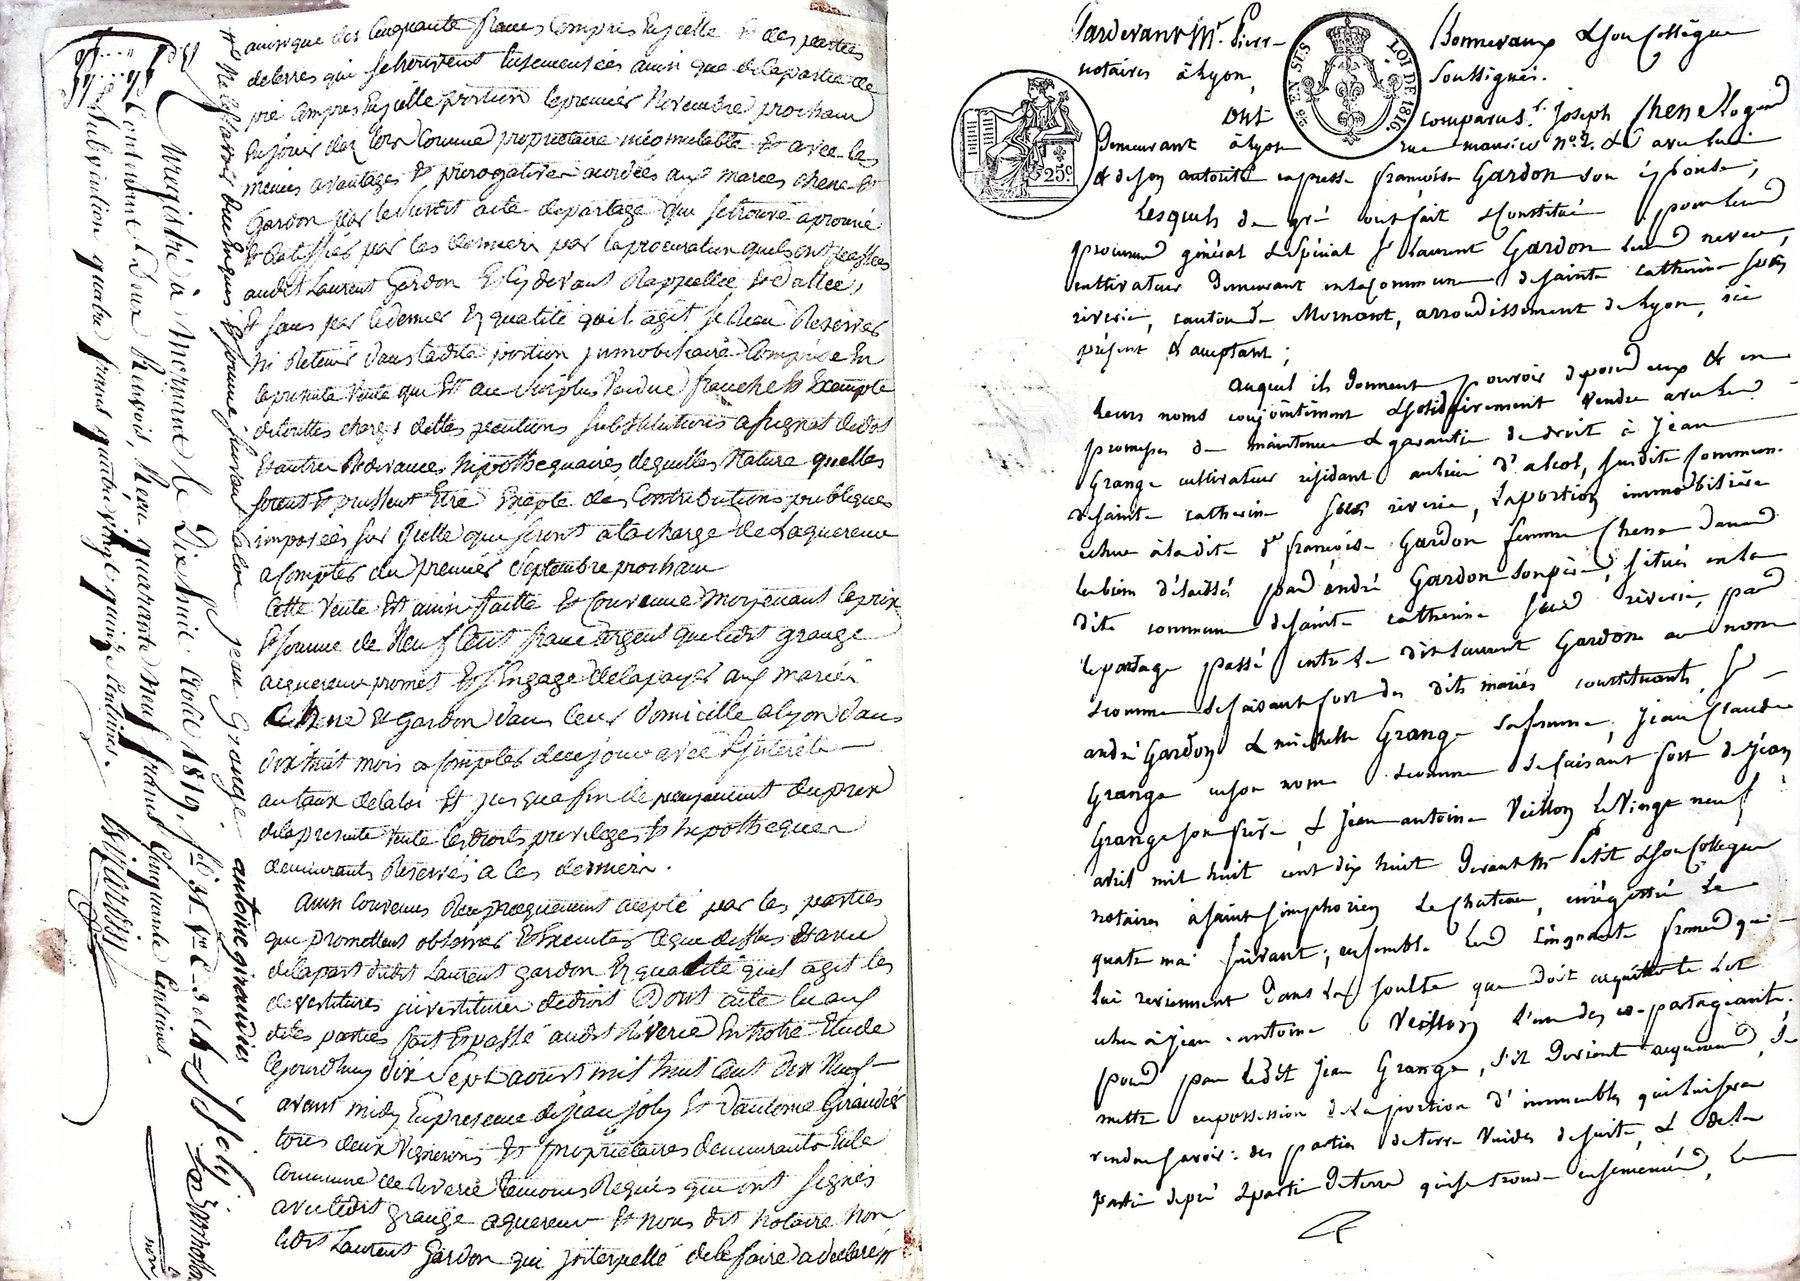 ainsi que des Cinquante francs Compris En icelle Et des parties
de terres qui se trouvent Ensemencées ainsi que de la partie de
pré Compris En icelle portion le premier Novembre prochain
En jouir des lors Comme proprietaire incomutable Et avec les
mêmes avantages Et prérogatives acordées aux mariés chene Et
Gardon par le susdit acte de partage qui se trouve aprouvé
Et Ratiffiés par ces derniers par la procuration quels ont passées
audit Laurent Gardon Et Cy devant Rappellée Et dattée,
Et sans par le dernier En qualité qu'il agit se Rien Reserver
ni Retenir dans ladite portion jmmobiliaire Comprise En
la presente Vente qui Est au Surplus Vendue franche Et Exempte
de touttes charges dettes
Et autres Redevances hipothequaires de quelles Nature quelles
soient Et puissent Etre Excepté des Contributions publiques
imposées sur Icelle qui seront a la charge de Laquereur
a Compter du premier Septembre prochain
Cette Vente Est ainsi faitte Et Convenue Moyenant le prix
Et somme de Neuf Cent francs argent que ledit grange
aquereur promet Et s'Engage de la payer aux mariés
Chene Et Gardon dans leur domicille a lyon dans
dix huit mois a Compter de ce jour avec Interêts
au taux de la loi Et jusqua fin de payement du prix
de la presente Vente les droits privileges Et hipotheques
demeurants Reservés a ces derniers.
Ainsi Convenus Reciproquement accepté par les parties
qui promettent observer Et Executer ce que dessus Et avec
de la part dudit Laurent gardon En qualité quil agit les
devestitures jnvestitures de droit Dont acte lu aux
dites parties fait Et passé audit Riverie En Notre Etude
Cejourdhuy dix Sept aoust mil huit Cent dix Neuf
avant midy En presence de jean joly Et d'antoine Giraudier
tous deux Vignerons Et proprietaires demeurants En la
Commune de Riverie temoins Requis qui ont signés
avec ledit grange aquereur Et nous dit Notaire Non
ledit Laurent Gardon qui jnterpellé de le faire a declaré
jean grange antoine giraudier
j Joly
Enregistré à Mornant le Dix huit août 1819. fol 31
Contenant Deux Renvois, Reçu quarante Neuf francs Cinquante Centimes
Subvention quatre francs quatre vingt quinze Centimes.
Pardevant Mr. Pierre Bonnevaux & son Collègue
notaires à Lyon, Soussignés.
Ont comparus Sr. Joseph Chene
Demeurant à Lyon rue maurico no. 2. &
& de son autorité expresse françoise Gardon son épouse;
Lesquels de gré ont fait & Constitué pour leur
procureur général & Spécial Sr Laurent Gardon leur neveu,
cultivateur Demeurant en la Commune de Sainte Catherine sous
riverie, canton de Mornant, arrondissement de Lyon, ici
présent & acceptant;
auquel ils donnent pouvoir de pour eux & en
leurs noms conjointement & solidairement vendre avec
promesse de maintenue & garantie de droit à Jean
Grange cultivateur résidant au lieu d'alcol, susdite Commune
de Sainte catherine sous riverie, la portion immobilière
echue à la dite de françoise Gardon femme Chene dans
les biens délaissés par andré Gardon son père, situés en la
dite commune de Sainte catherine sous riverie, par
le partage passé entre le dit Laurent Gardon au nom
& comme se faisant fort des dits mariés constituants, Sr
andré Gardon & michelle Grange sa femme, Jean Claude
Grange en son nom & comme se faisant fort de Jean
Grange son frère, & Jean antoine Veillon le Vingt neuf
avril mil huit cent dix huit Devant Mr Petit & son Collègue
notaires à Saint Simphorien Le Chateau, enrégistré le
quatre mai suivant; ensemble les Cinquante francs qui
lui reviennent Dans la soulte que doit acquitter le lot
echu à Jean antoine Veillon l'un des co-partageants.
pour par ledit Jean Grange, s'il Devient acquereur, se
mettre en possession de la portion d'immeubles qui lui sera
vendue savoir: des parties de terre Vuides de suite, & de la
partie de pré & partie de terre qui se trouve ensemencée, le
LOI DE 1816
EN SUS
25c